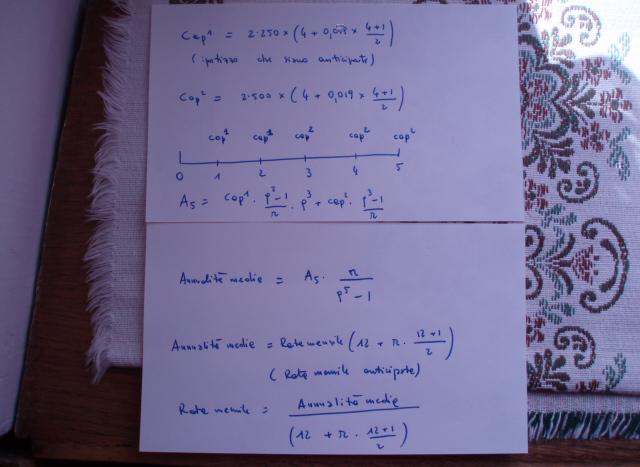 Cap¹ = 2.250 × (4 + 0,019 × (4+1)/2)
(ipotizzo che siano anticipate)
Cap² = 2.500 × (4 + 0,019 × (4+1)/2)
cap¹ cap¹ cap² cap² cap²
0 1 2 3 4 5
A₅ = cap¹ · (q²-1)/r · q³ + cap² · (q³-1)/r
Annualità media = A₅ · r/(q⁵ - 1)
Annualità media = Rata mensile (12 + r · (12+1)/2)
(Rata mensile anticipata)
Rata mensile = Annualità media / (12 + r · (12+1)/2)